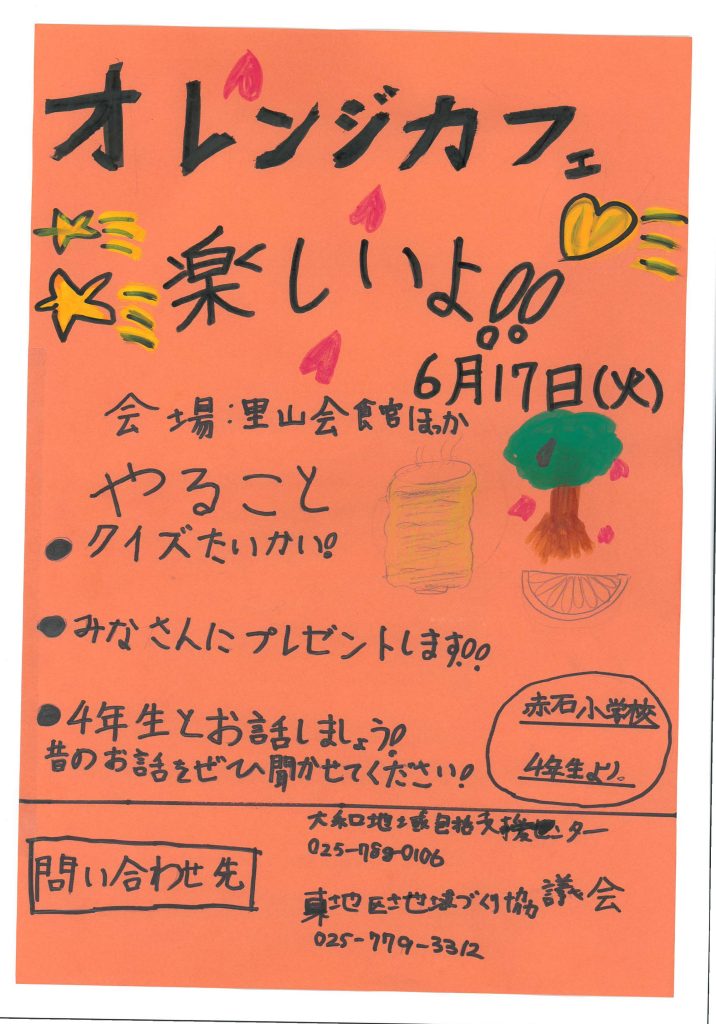 オレンジカフェ
楽しいよ!!
6月17日(火)
会場:里山会食宮ほっか
やること
● クイズたいかい!
● みなさんにプレゼントします!!
● 4年生とお話しましょう!
昔のお話をぜひ聞かせてください!
赤石小学校
4年生より。
問い合わせ先
大和地域包括支援センター
025-789-0106
東地区地域づくり協議会
025-779-3312